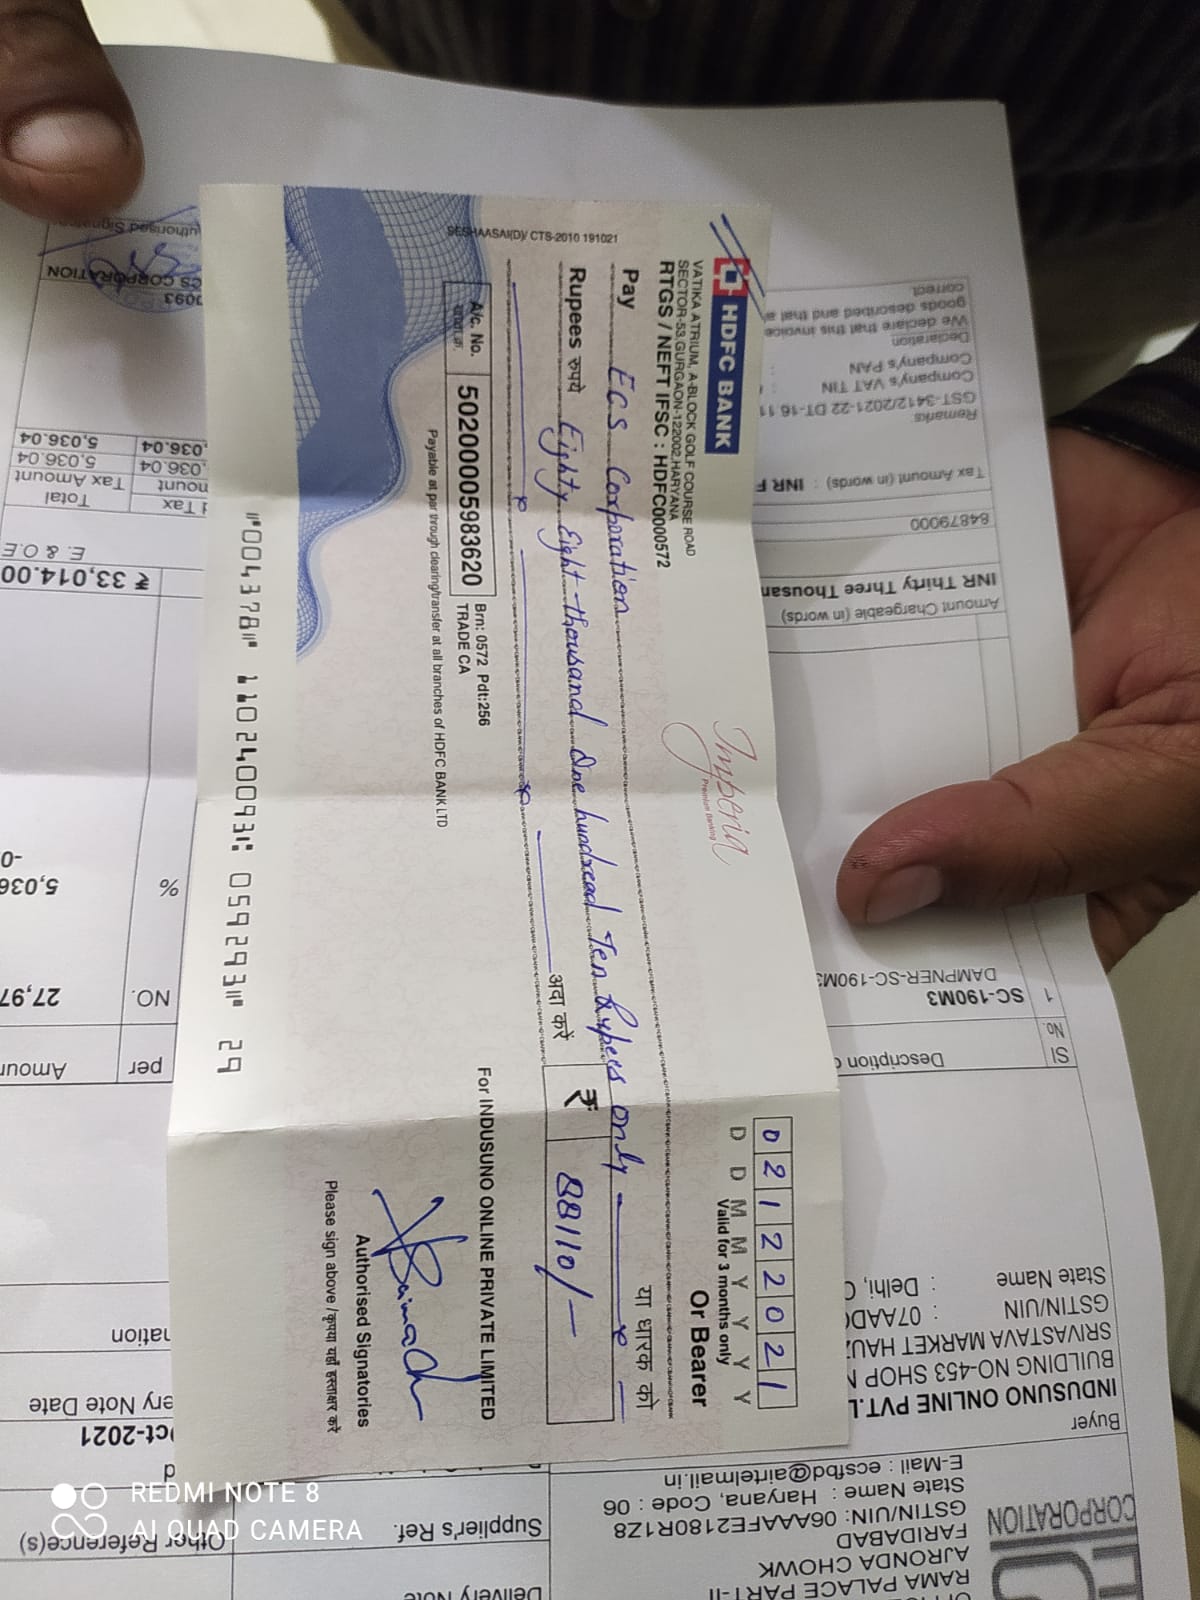 HDFC BANK
VATIKA ATRIUM, A-BLOCK GOLF COURSE ROAD
SECTOR-53, GURGAON-122002, HARYANA
RTGS / NEFT IFSC : HDFC0000572
Imperia
Premium Banking
02122021
D D M M Y Y Y Y
Valid for 3 months only
Pay ECS Corporation
Or Bearer
या धारक को
Rupees रुपये Eighty Eight thousand One hundread Ten Rupees only
अदा करें
₹ 88110/-
A/c. No. 50200005983620
Brn: 0572 Pdt:256
TRADE CA
Payable at par through clearing/transfer at all branches of HDFC BANK LTD
For INDUSUNO ONLINE PRIVATE LIMITED
Authorised Signatories
Please sign above / कृपया यहाँ हस्ताक्षर करें
SESHAASAI(D)/ CTS-2010 191021
⑈004378⑈ 110240093⑆ 059293⑈ 29
CORPORATION
RAMA PALACE PART-II
AJRONDA CHOWK
FARIDABAD
GSTIN/UIN: 06AAAFE2180R1Z8
State Name : Haryana, Code : 06
E-Mail : ecsfbd@airtelmail.in
Buyer
INDUSUNO ONLINE PVT.L
BUILDING NO-453 SHOP N
SRIVASTAVA MARKET HAUZ
GSTIN/UIN : 07AAD
State Name : Delhi, C
Delivery Note
Supplier's Ref.
Other Reference(s)
d
ct-2021
ery Note Date
nation
Sl No.
Description o
per
Amoun
1 SC-190M3
DAMPNER-SC-190M3
NO.
27,97
%
5,036
-0
₹ 33,014.00
E. & O.E
Amount Chargeable (in words)
INR Thirty Three Thousan
84879000
Tax
Total
mount
Tax Amount
,036.04
5,036.04
,036.04
5,036.04
Tax Amount (in words) : INR F
Remarks
GST-3412/2021-22 DT-16.11
Company's VAT TIN :
Company's PAN :
Declaration
We declare that this invoice
goods described and that a
correct.
093
CS CORPORATION
uthorised Signato
REDMI NOTE 8
AI QUAD CAMERA